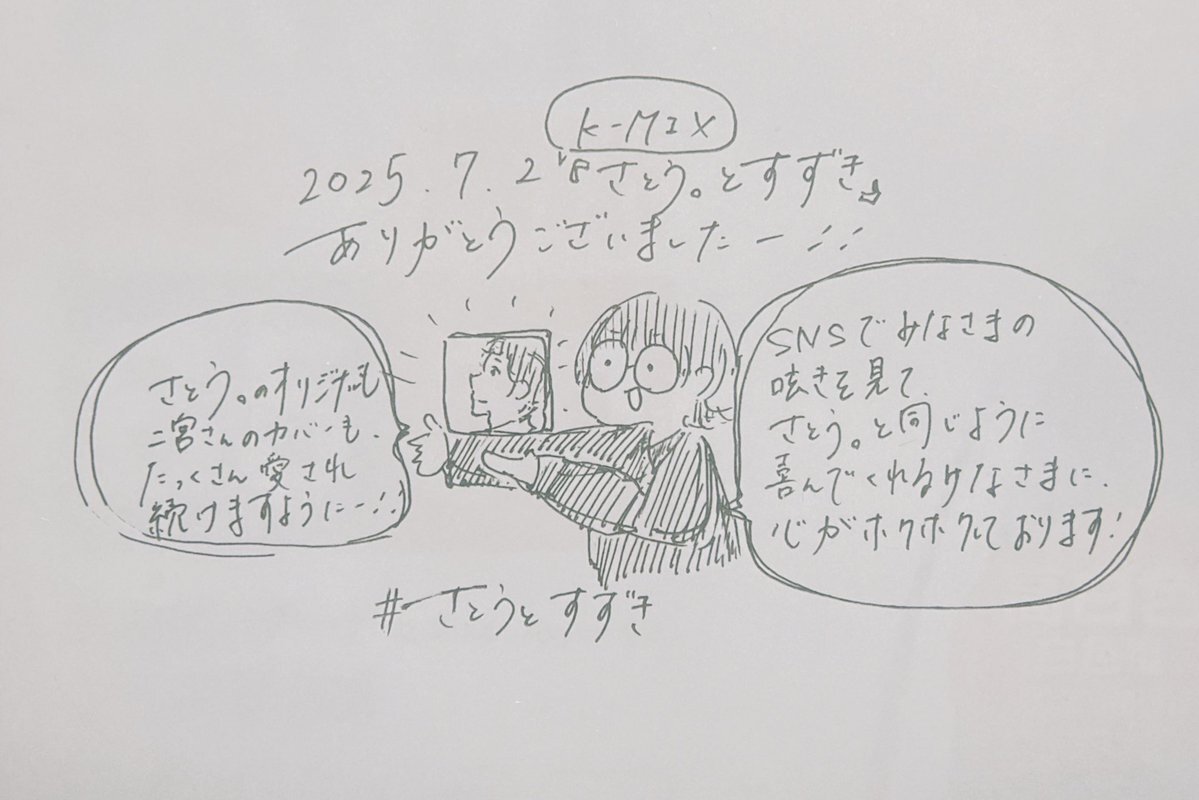 K-MIX
2025.7.2『さとう。とすずき』
ありがとうございましたー!!
さとう。のオリジナルも
二宮さんのカバーも、
たっくさん愛され
続けますようにー!!
SNSでみなさまの
呟きを見て、
さとう。と同じように
喜んでくれるみなさまに、
心がホクホクしております!
#さとうとすずき